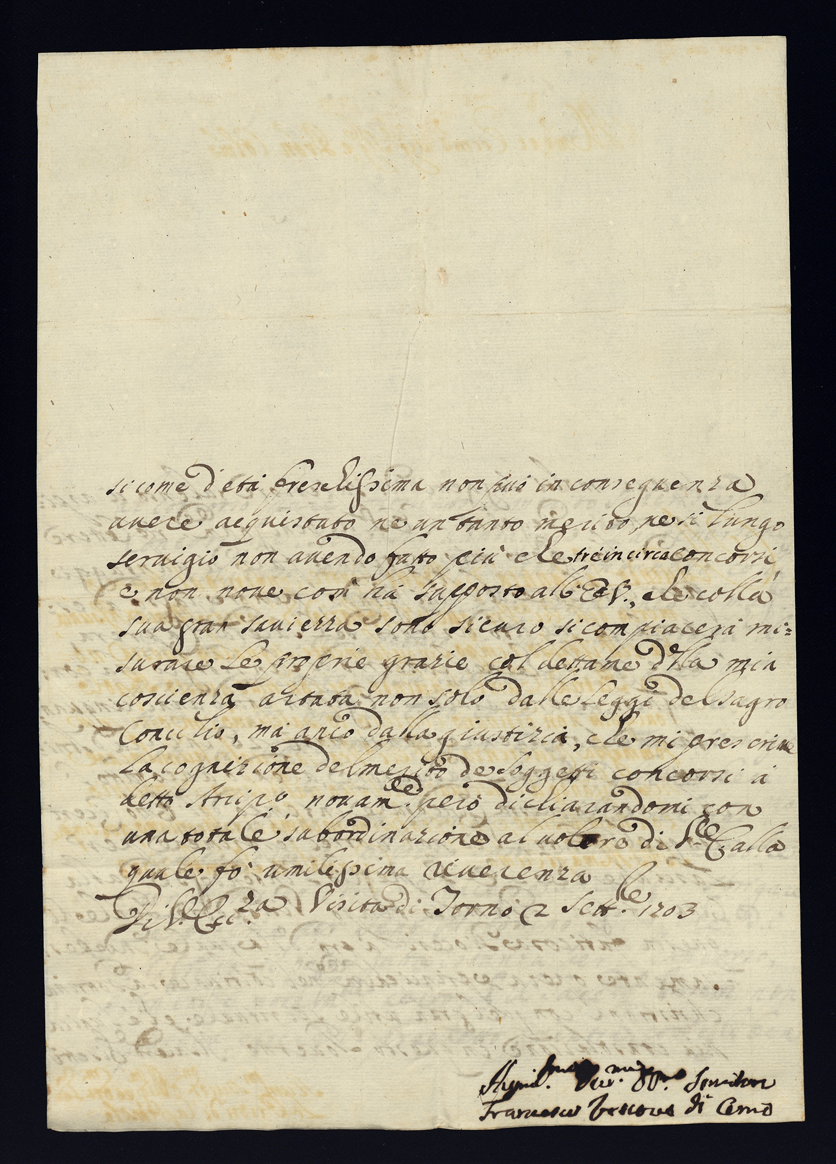 si come d'età freschissima non può in conseguenza
avere acquistato ne un tanto merito, ne si lungo
servigio non avendo fatto più che tre in circa concorsi
e non nove così hà supposto all' E. V., che colla
sua gran saviezza sono sicuro si compiacerà mi=
surare le proprie grazie col dettame della mia
coscienza astretta non solo dalle leggi del sagro
Concilio, mà anco dalla giustizia, che mi prescrive
la cognizione del merito de soggetti concorsi à
detto Arcip.o, novam.te però dichiarandomi con
una totale subordinazione al volere di V. E., alla
quale fò umilissima riverenza
Di V. Ecc.za Visita di Torno 2 Sett.e 1703
Humil.mo Servitore
Francesco Vescovo di Como